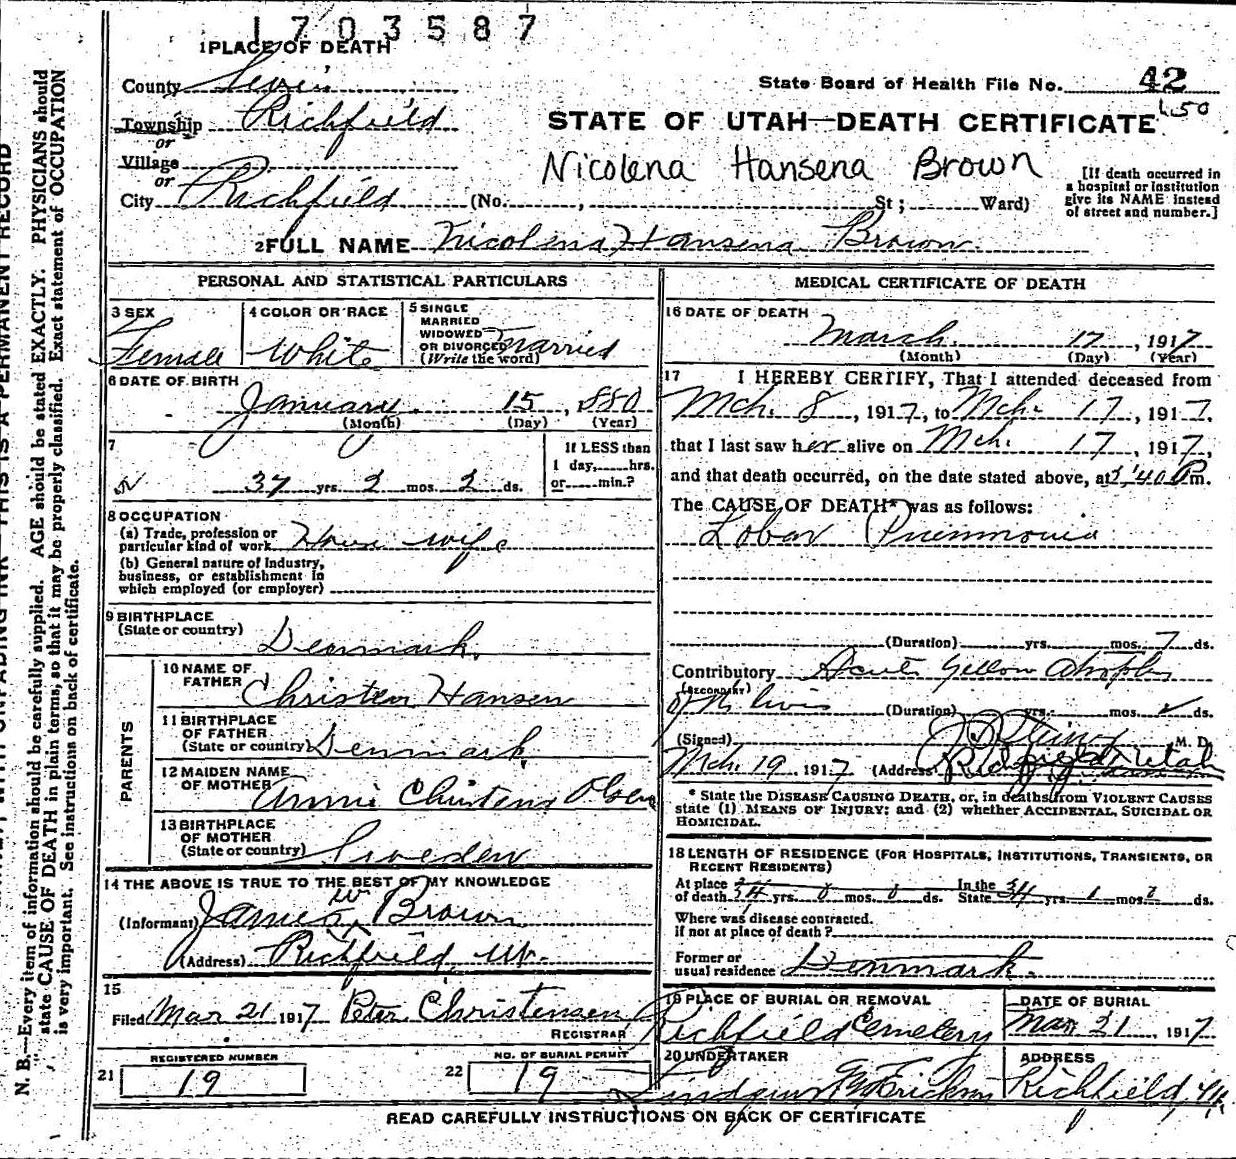 1703587
1 PLACE OF DEATH
County Sevier
State Board of Health File No. 42
Township Richfield
1.50
or
STATE OF UTAH—DEATH CERTIFICATE
Village
Nicolena Hansena Brown
or
City Richfield (No. , St ; Ward)
[If death occurred in
a hospital or institution
give its NAME instead
of street and number.]
2 FULL NAME Nicolena Hansena Brown
PERSONAL AND STATISTICAL PARTICULARS
3 SEX
Female
4 COLOR OR RACE
White
5 SINGLE
MARRIED
WIDOWED
OR DIVORCED
(Write the word)
Married
6 DATE OF BIRTH
January 15, 1880
(Month) (Day) (Year)
7
37 yrs. 2 mos. 2 ds.
If LESS than
1 day, hrs.
or min.?
8 OCCUPATION
(a) Trade, profession or
particular kind of work House wife
(b) General nature of Industry,
business, or establishment in
which employed (or employer)
9 BIRTHPLACE
(State or country)
Denmark.
PARENTS
10 NAME OF
FATHER
Christen Hansen
11 BIRTHPLACE
OF FATHER
(State or country) Denmark
12 MAIDEN NAME
OF MOTHER
Annie Christena Olsen
13 BIRTHPLACE
OF MOTHER
(State or country) Sweden
14 THE ABOVE IS TRUE TO THE BEST OF MY KNOWLEDGE
(Informant) James W Brown
(Address) Richfield, Ut.
15
Filed Mar 21 1917 Peter Christensen
REGISTRAR
REGISTERED NUMBER
21 19
NO. OF BURIAL PERMIT
22 19
MEDICAL CERTIFICATE OF DEATH
16 DATE OF DEATH
March 17, 1917
(Month) (Day) (Year)
17 I HEREBY CERTIFY, That I attended deceased from
Mch. 8, 1917, to Mch. 17, 1917,
that I last saw her alive on Mch. 17, 1917,
and that death occurred, on the date stated above, at 40 P m.
The CAUSE OF DEATH* was as follows:
Lobar Pneumonia
(Duration) yrs. mos. 7 ds.
Contributory Acute Yellow Atrophy
(SECONDARY)
of the liver (Duration) yrs. mos. ds.
(Signed) M. D.
Mch. 19 1917 (Address) Richfield Utah
* State the DISEASE CAUSING DEATH, or, in deaths from VIOLENT CAUSES
state (1) MEANS OF INJURY; and (2) whether ACCIDENTAL, SUICIDAL OR
HOMICIDAL.
18 LENGTH OF RESIDENCE (FOR HOSPITALS, INSTITUTIONS, TRANSIENTS, OR
RECENT RESIDENTS)
At place
of death 34 yrs. 0 mos. 0 ds. In the State 34 yrs. 1 mos. 2 ds.
Where was disease contracted.
if not at place of death?
Former or
usual residence Denmark.
19 PLACE OF BURIAL OR REMOVAL
Richfield Cemetery
DATE OF BURIAL
Mar. 21, 1917
20 UNDERTAKER
Erickson
ADDRESS
Richfield, Ut.
READ CAREFULLY INSTRUCTIONS ON BACK OF CERTIFICATE
THIS IS A PERMANENT RECORD
N. B.—Every item of information should be carefully supplied. AGE should be stated EXACTLY. PHYSICIANS should
state CAUSE OF DEATH in plain terms, so that it may be properly classified. Exact statement of OCCUPATION
is very important. See instructions on back of certificate.